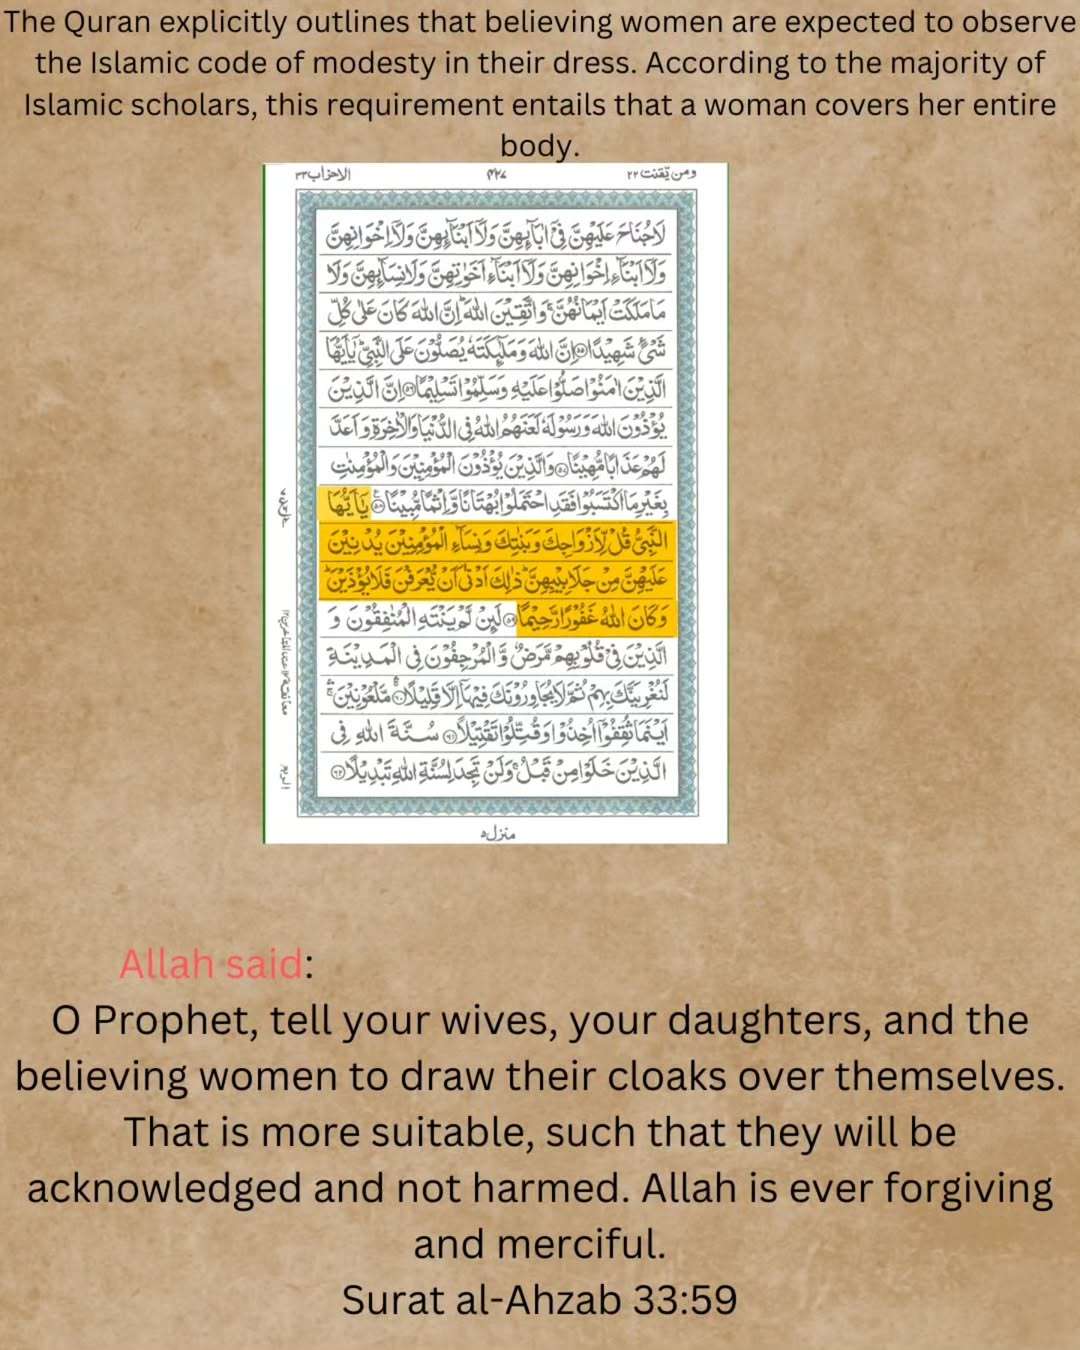 The Quran explicitly outlines that believing women are expected to observe
the Islamic code of modesty in their dress. According to the majority of
Islamic scholars, this requirement entails that a woman covers her entire
body.
ومن یقنت ٢٢ ٤٢٧ الاحزاب ٣٣
لَاجُنَاحَ عَلَيْهِنَّ فِيْٓ اٰبَآئِهِنَّ وَلَآ اَبْنَآئِهِنَّ وَلَآ اِخْوَانِهِنَّ
وَلَآ اَبْنَآءِ اِخْوَانِهِنَّ وَلَآ اَبْنَآءِ اَخَوٰتِهِنَّ وَلَا نِسَآئِهِنَّ وَلَا
مَا مَلَكَتْ اَيْمَانُهُنَّ ۚ وَاتَّقِيْنَ اللّٰهَ ؕ اِنَّ اللّٰهَ كَانَ عَلٰى كُلِّ
شَيْءٍ شَهِيْدًا ۝٥٥ اِنَّ اللّٰهَ وَمَلٰٓئِكَتَهٗ يُصَلُّوْنَ عَلَى النَّبِيِّ ؕ يٰٓاَيُّهَا
الَّذِيْنَ اٰمَنُوْا صَلُّوْا عَلَيْهِ وَسَلِّمُوْا تَسْلِيْمًا ۝٥٦ اِنَّ الَّذِيْنَ
يُؤْذُوْنَ اللّٰهَ وَرَسُوْلَهٗ لَعَنَهُمُ اللّٰهُ فِي الدُّنْيَا وَالْاٰخِرَةِ وَاَعَدَّ
لَهُمْ عَذَابًا مُّهِيْنًا ۝٥٧ وَالَّذِيْنَ يُؤْذُوْنَ الْمُؤْمِنِيْنَ وَالْمُؤْمِنٰتِ
بِغَيْرِ مَا اكْتَسَبُوْا فَقَدِ احْتَمَلُوْا بُهْتَانًا وَّاِثْمًا مُّبِيْنًا ۝٥٨ يٰٓاَيُّهَا
النَّبِيُّ قُلْ لِّاَزْوَاجِكَ وَبَنٰتِكَ وَنِسَآءِ الْمُؤْمِنِيْنَ يُدْنِيْنَ
عَلَيْهِنَّ مِنْ جَلَابِيْبِهِنَّ ؕ ذٰلِكَ اَدْنٰٓى اَنْ يُّعْرَفْنَ فَلَا يُؤْذَيْنَ ؕ
وَكَانَ اللّٰهُ غَفُوْرًا رَّحِيْمًا ۝٥٩ لَئِنْ لَّمْ يَنْتَهِ الْمُنٰفِقُوْنَ وَ
الَّذِيْنَ فِيْ قُلُوْبِهِمْ مَّرَضٌ وَّالْمُرْجِفُوْنَ فِي الْمَدِيْنَةِ
لَنُغْرِيَنَّكَ بِهِمْ ثُمَّ لَا يُجَاوِرُوْنَكَ فِيْهَآ اِلَّا قَلِيْلًا ۝٦٠ مَّلْعُوْنِيْنَ ۛۚ
اَيْنَمَا ثُقِفُوْٓا اُخِذُوْا وَقُتِّلُوْا تَقْتِيْلًا ۝٦١ سُنَّةَ اللّٰهِ فِي
الَّذِيْنَ خَلَوْا مِنْ قَبْلُ ۚ وَلَنْ تَجِدَ لِسُنَّةِ اللّٰهِ تَبْدِيْلًا ۝٦٢
منزل ٥
Allah said:
O Prophet, tell your wives, your daughters, and the
believing women to draw their cloaks over themselves.
That is more suitable, such that they will be
acknowledged and not harmed. Allah is ever forgiving
and merciful.
Surat al-Ahzab 33:59